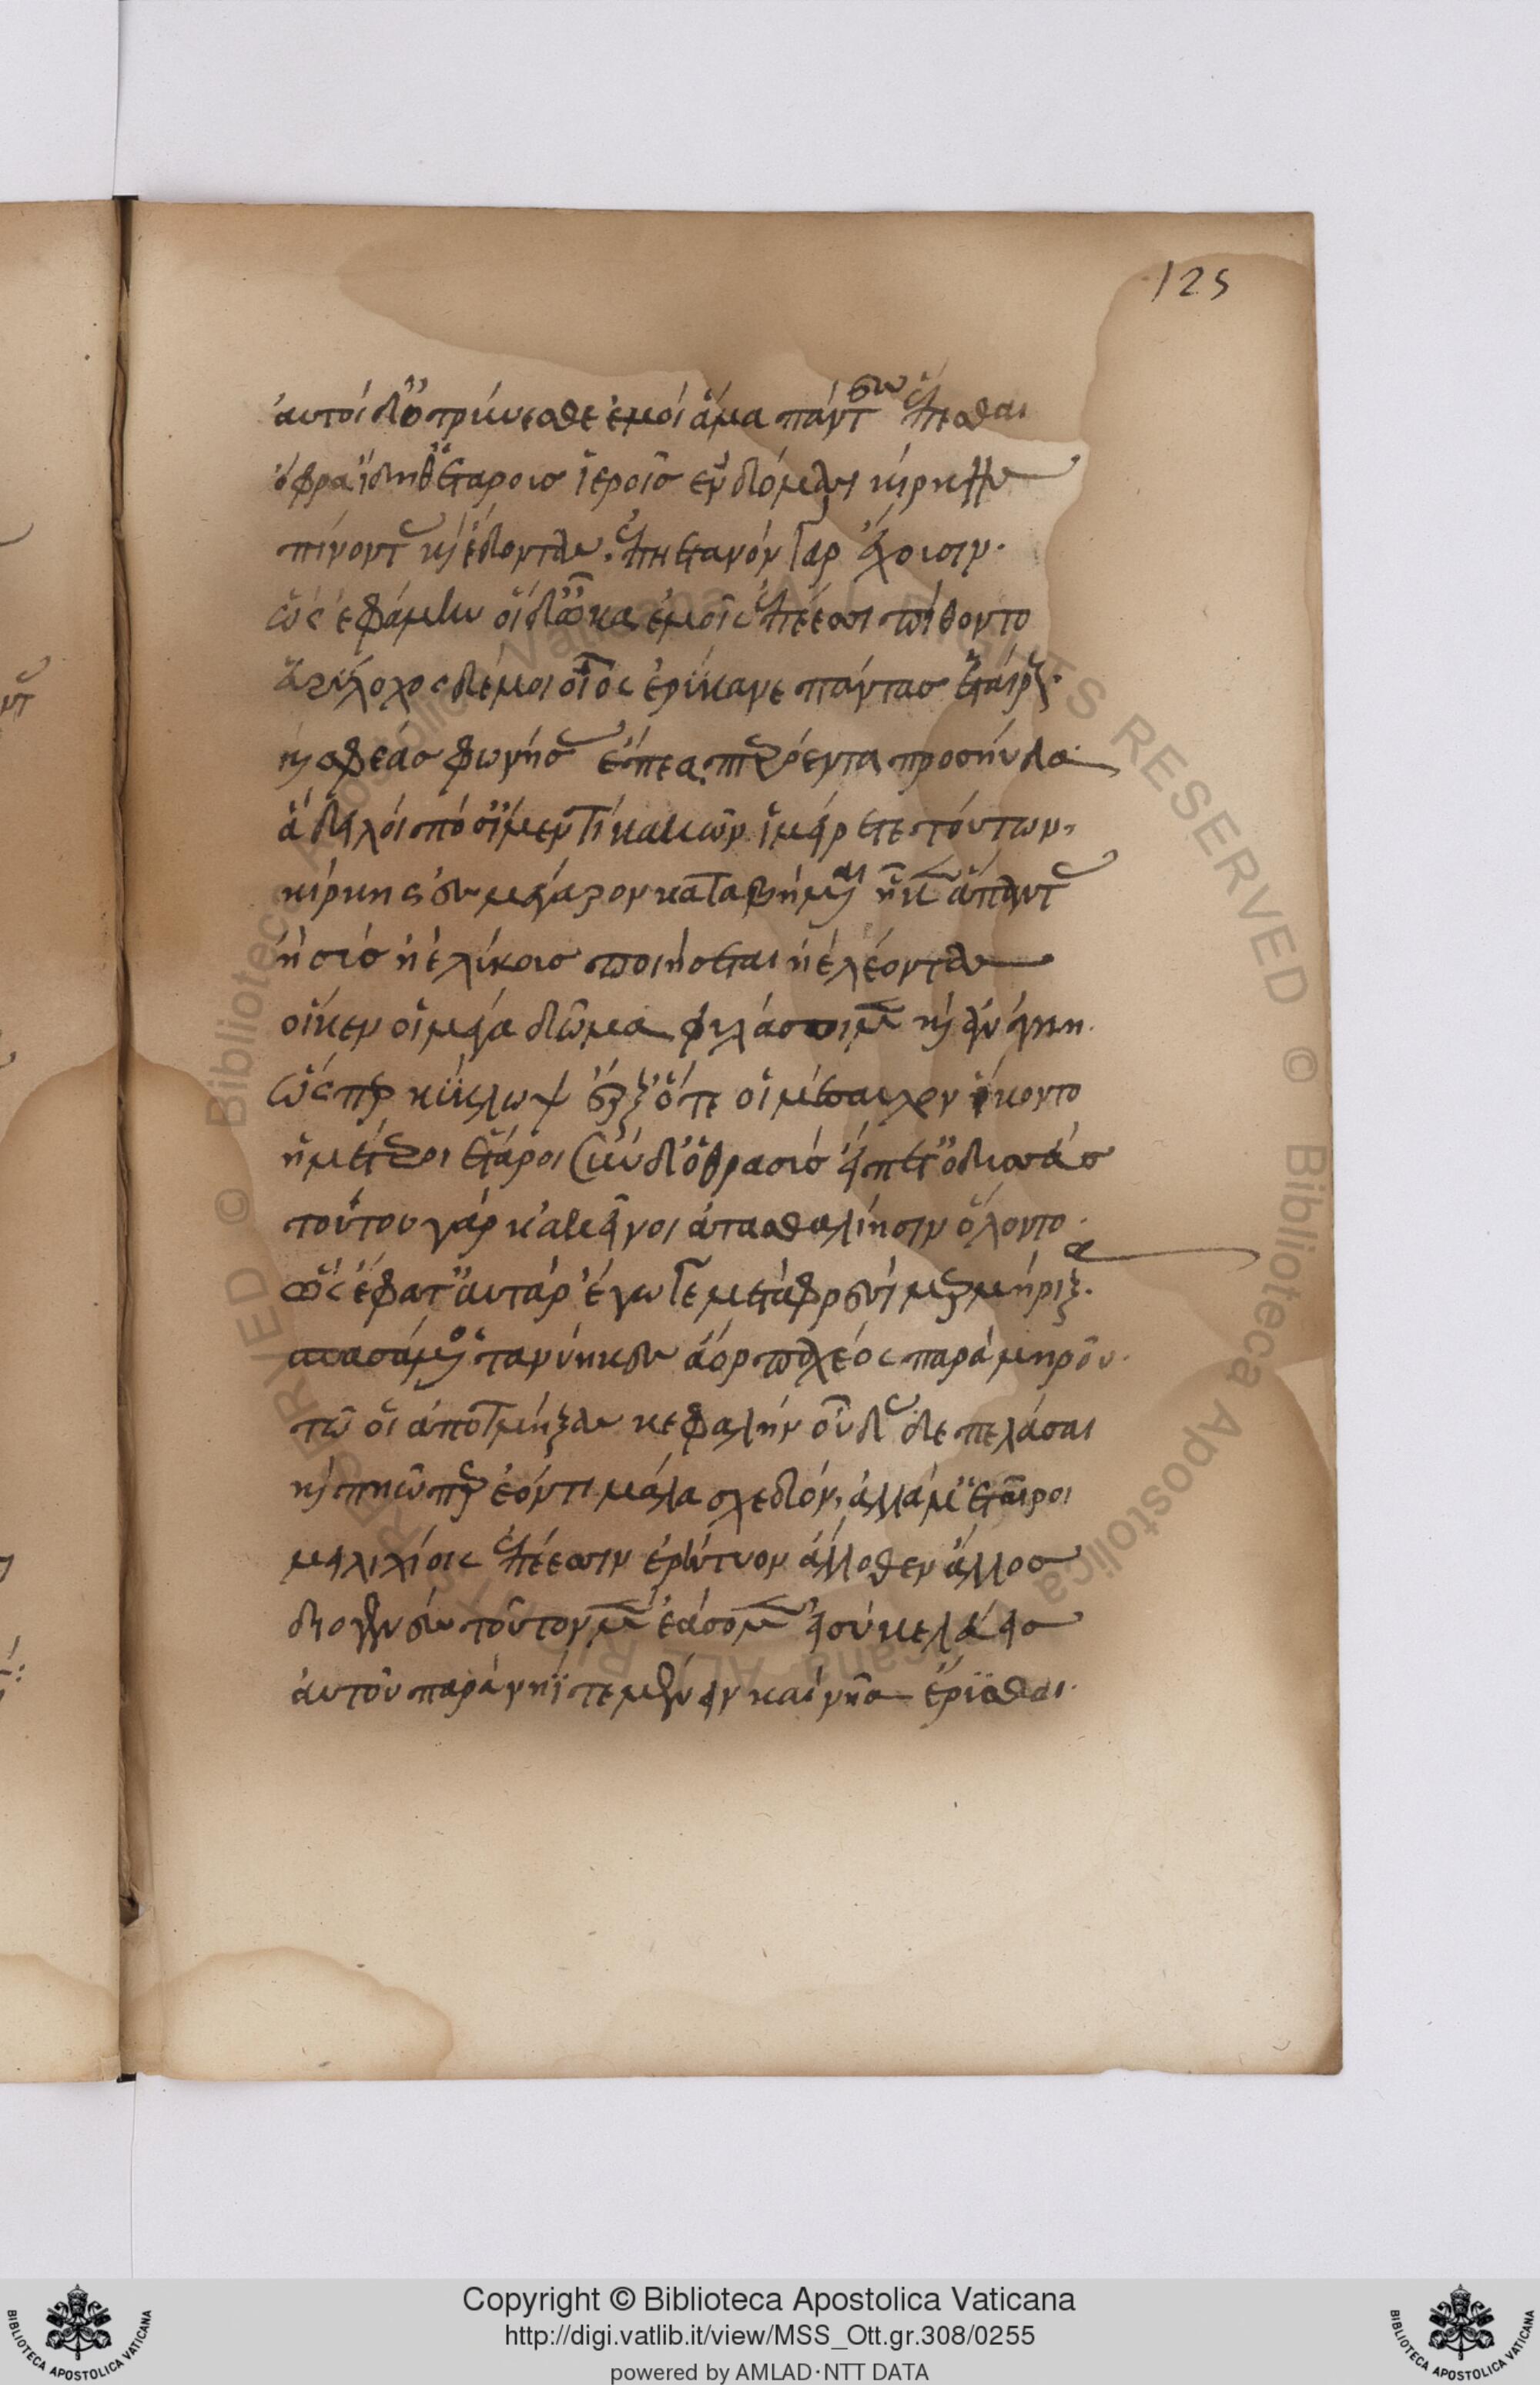 125
αὐτοὶ δ' ὀτρύνεσθε ἐμοὶ ἅμα πάντες ἕπεσθαι
ὄφρα ἴδηθ' ἑτάρους ἱεροῖς ἐν δώμασι κίρκης
πίνοντας καὶ ἔδοντας. ἐπηετανὸν γὰρ ἔχουσιν.
ὣς ἐφάμην οἱ δ' ὦκα ἐμοῖς ἐπέεσσι πίθοντο
εὐρύλοχος δέ μοι οἶος ἐρύκανε πάντας ἑταίρους.
καὶ σφεας φωνήσας ἔπεα πτερόεντα προσηύδα.
ἆ δειλοὶ πόσ' ἴμεν τί κακῶν ἱμείρετε τούτων,
κίρκης ἐς μέγαρον καταβήμεναι ἥ κεν ἅπαντας
ἢ σῦς ἠὲ λύκους ποιήσεται ἠὲ λέοντας
οἵ κέν οἱ μέγα δῶμα φυλάσσοιμεν καὶ ἀνάγκη.
ὥς περ κύκλωψ ἔρξ' ὅτε οἱ μέσσαυλον ἵκοντο
ἡμέτεροι ἕταροι σὺν δ' ὁ θρασὺς εἵπετ' ὀδυσσεύς
τούτου γὰρ καὶ κεῖνοι ἀτασθαλίησιν ὄλοντο.
ὣς ἔφατ' αὐτὰρ ἔγωγε μετὰ φρεσὶ μερμήριξα.
σπασάμενος τανύηκες ἄορ παχέος παρὰ μηροῦ.
τῷ οἱ ἀποτμήξας κεφαλὴν οὖδας δε πελάσαι
καὶ πηῷ περ ἐόντι μάλα σχεδόν, ἀλλά μ' ἑταῖροι
μειλιχίοις ἐπέεσσιν ἐρήτυον ἄλλοθεν ἄλλος
διογενὲς τοῦτον μὲν ἐάσομεν εἰ σὺ κελεύεις
αὐτοῦ παρὰ νηΐ τε μένειν καὶ νῆα ἔρυσθαι.
Copyright © Biblioteca Apostolica Vaticana
http://digi.vatlib.it/view/MSS_Ott.gr.308/0255
powered by AMLAD·NTT DATA